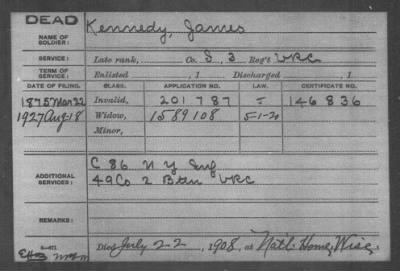 DEAD
NAME OF SOLDIER: Kennedy, James
SERVICE: Late rank, Co. I, 3 Reg't VRC
TERM OF SERVICE: Enlisted , 1 Discharged , 1
DATE OF FILING. CLASS. APPLICATION NO. LAW. CERTIFICATE NO.
1875 Mar 22 Invalid, 201787 146836
1927 Aug 18 Widow, 1589108 5-1-20
Minor,
ADDITIONAL SERVICES: C 86 N Y Inf
49 Co 2 Btn VRC
REMARKS:
Died July 22, 1908, at Nat'l Home, Wisc.